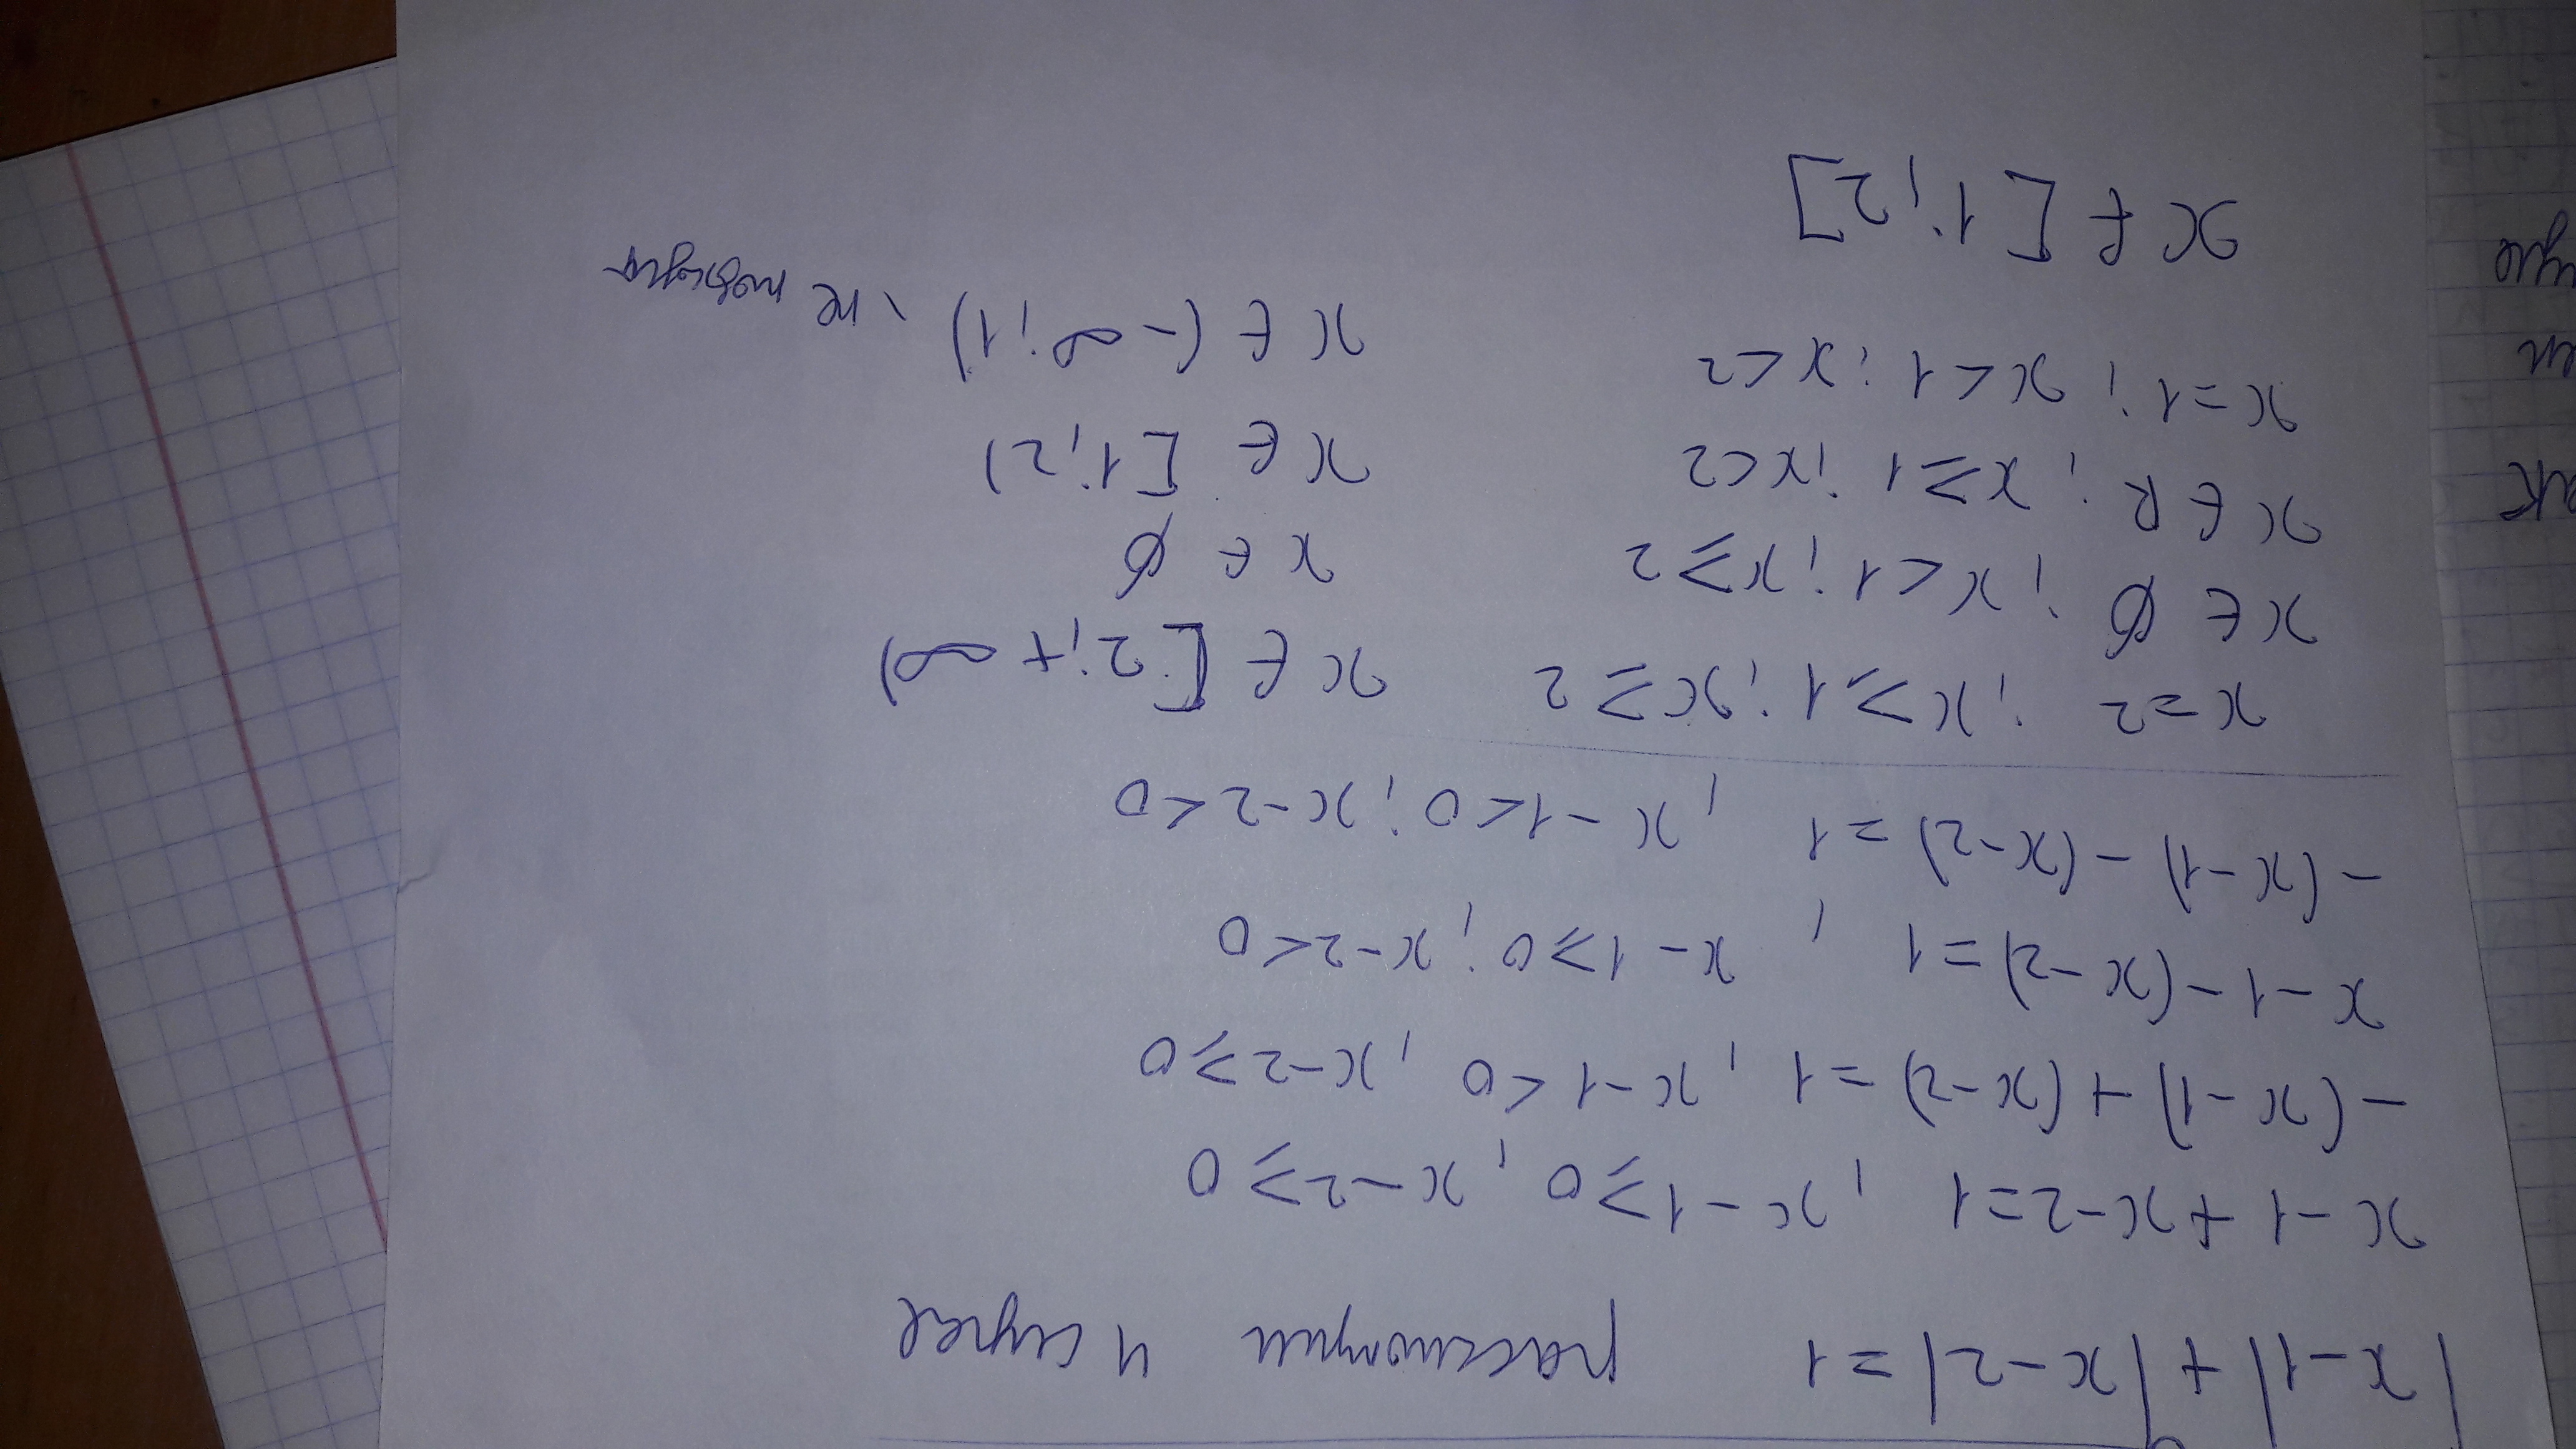 |x-1|+|x-2|=1 рассмотрим 4 случае
x-1+x-2=1 ; x-1⩾0 ; x-2⩾0
-(x-1)+(x-2)=1 ; x-1<0 ; x-2⩾0
x-1-(x-2)=1 ; x-1⩾0 ; x-2<0
-(x-1)-(x-2)=1 ; x-1<0 ; x-2<0
x=2 ; x⩾1 ; x⩾2 x∈[2;+∞)
x∈∅ ; x<1 ; x⩾2 x∈∅
x∈R ; x⩾1 ; x<2 x∈[1;2)
x=1 ; x<1 ; x<2 x∈(-∞;1) не
x∈[1;2]